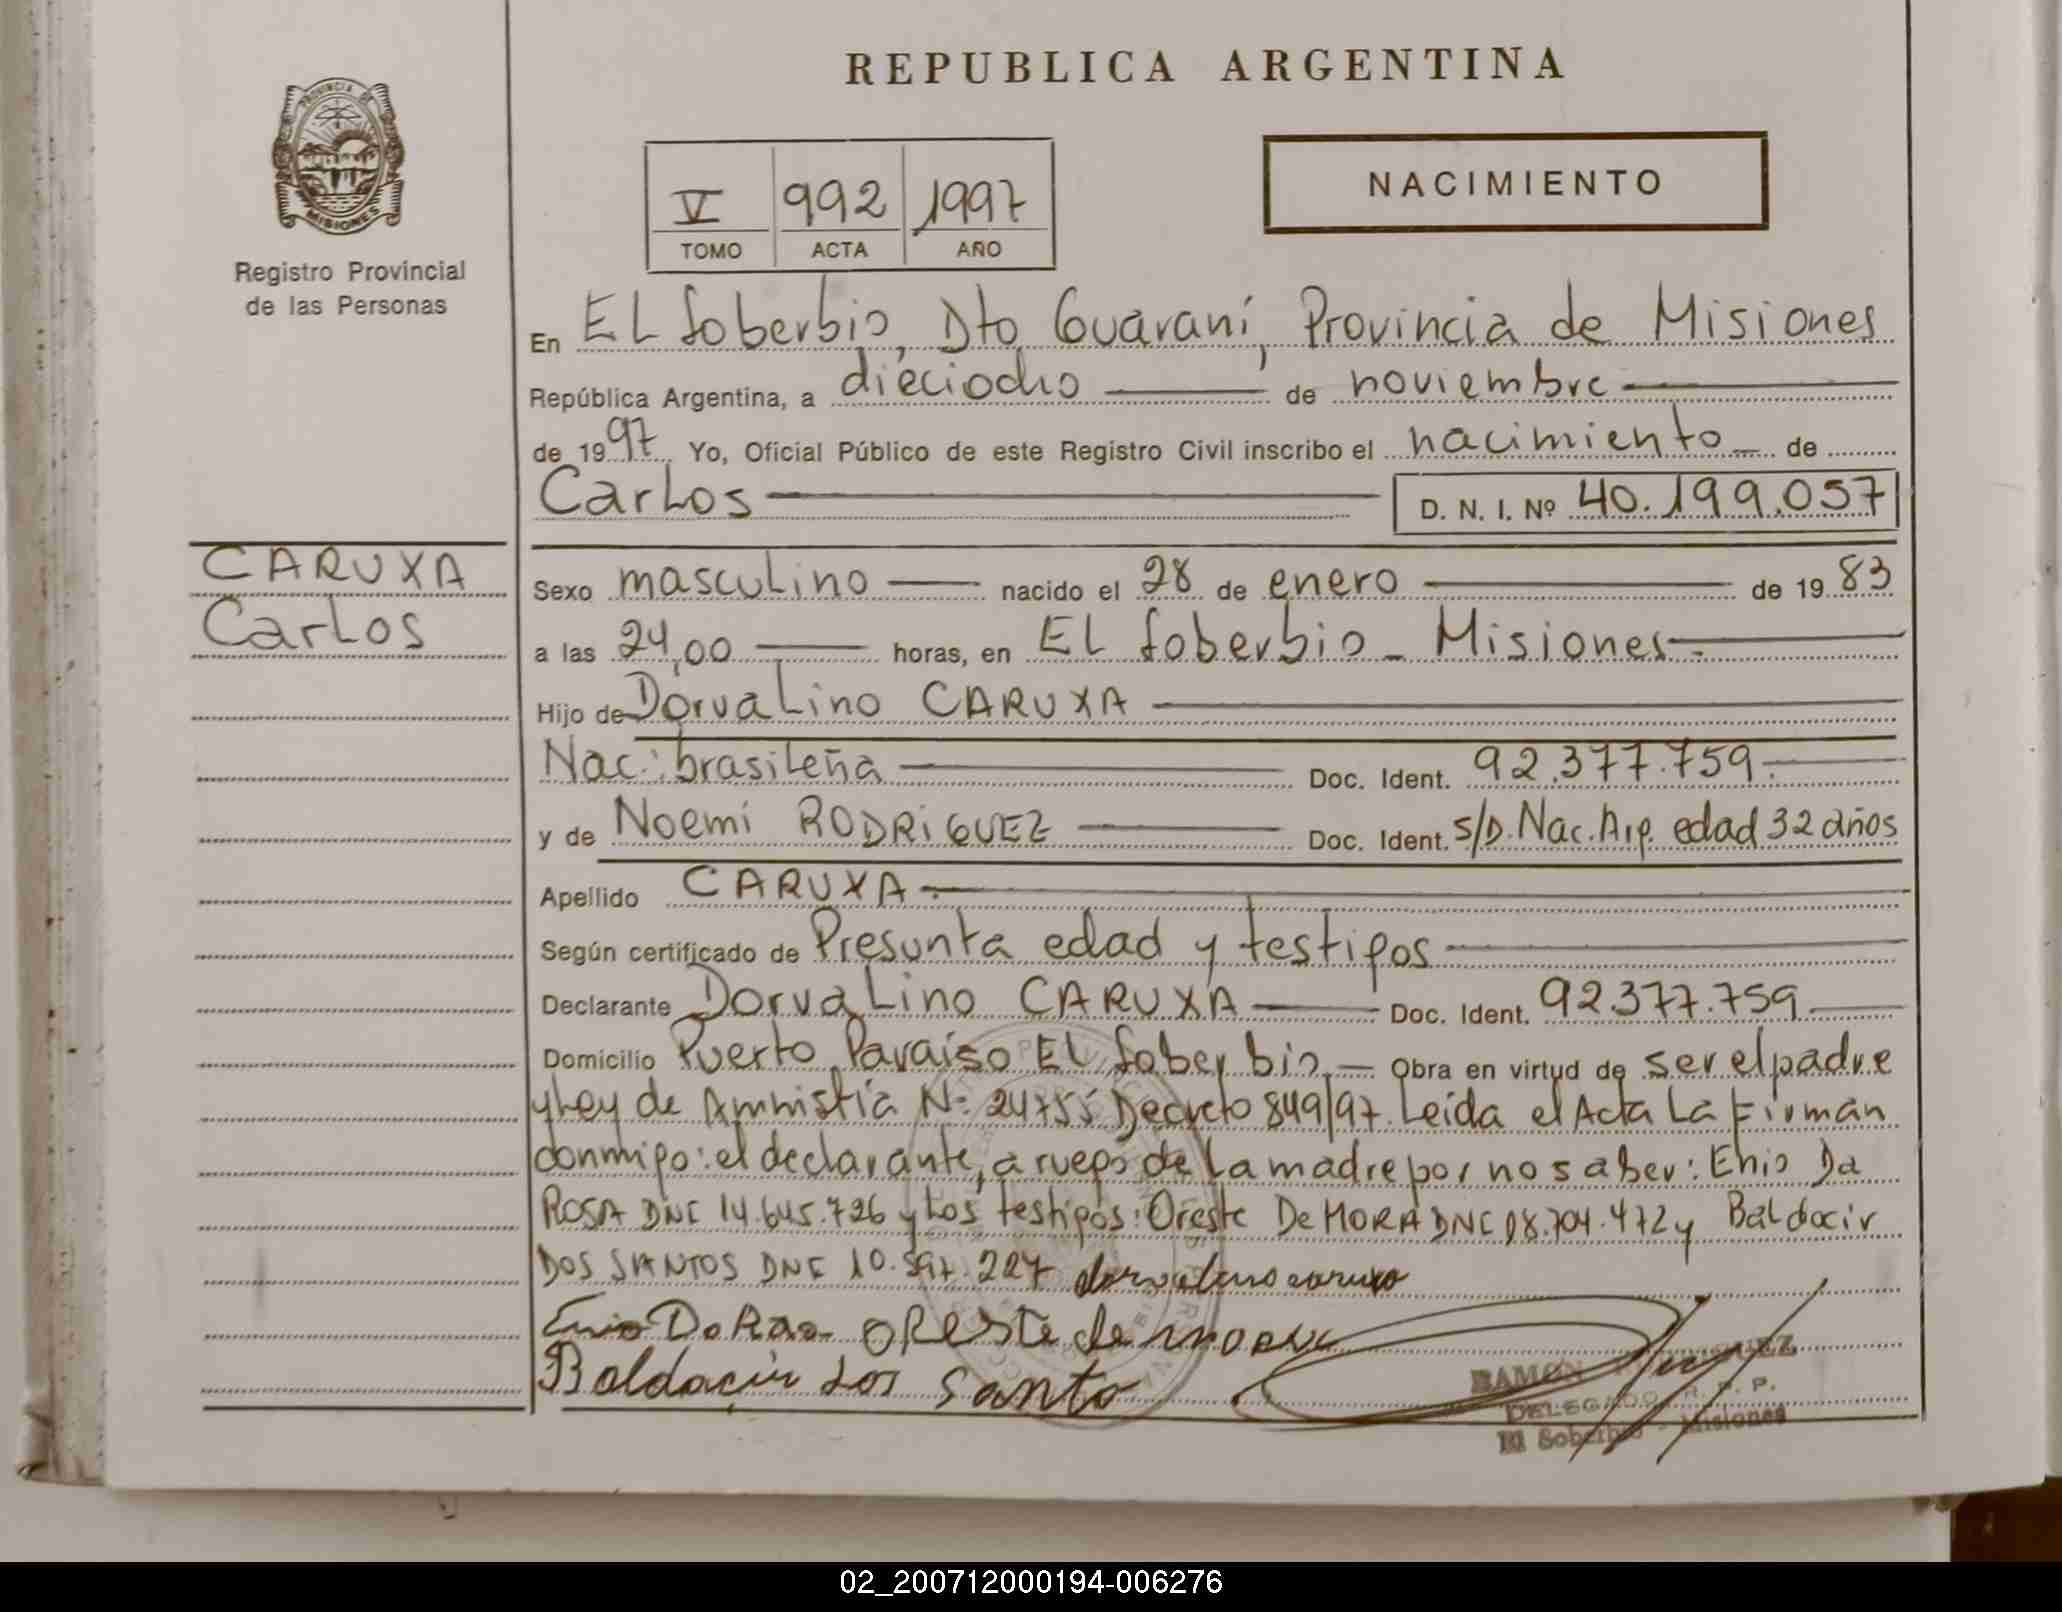 REPUBLICA ARGENTINA
PROVINCIA DE
MISIONES
Registro Provincial
de las Personas
V 992 1997
TOMO ACTA AÑO
NACIMIENTO
En EL Soberbio, Dto Guaraní, Provincia de Misiones
República Argentina, a dieciocho de noviembre
de 1997 Yo, Oficial Público de este Registro Civil inscribo el nacimiento de
Carlos D. N. I. Nº 40.199.057
CARUXA
Carlos
Sexo masculino nacido el 28 de enero de 1983
a las 24,00 horas, en EL Soberbio - Misiones-.
Hijo de Dorvalino CARUXA
Nac: brasileña Doc. Ident. 92.377.759.
y de Noemí RODRIGUEZ Doc. Ident. S/D. Nac. Arg. edad 32 años
Apellido CARUXA.
Según certificado de Presunta edad y testigos
Declarante Dorvalino CARUXA Doc. Ident. 92.377.759
Domicilio Puerto Paraiso EL Soberbio.- Obra en virtud de ser el padre
y Ley de Amnistía Nº 24755 Decreto 849/97. Leída el Acta La Firman
conmigo: el declarante, a ruego de La madre por no saber: Enio Da
ROSA DNI 14.645.726 y Los testigos: Oreste De MORA DNI 18.704.472 y Baldocir
DOS SANTOS DNI 10.597.227 dorvalino caruxa
Enio Da Rosa Oreste de mora
Baldocir dos santo
RAMON
DELEGADO R. P. P.
El Soberbio - Misiones
02_200712000194-006276